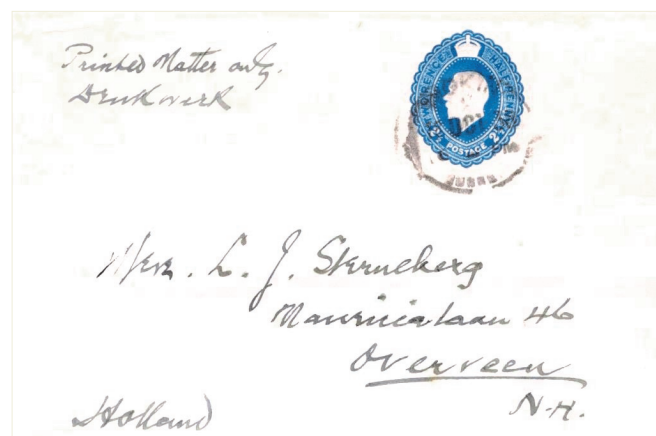 Printed Matter only.
Drukwerk
TWO PENCE HALFPENNY
2½ POSTAGE 2½
Mevr. L. J. Sterneberg
Mauricialaan 46
Overveen
N-H.
Holland